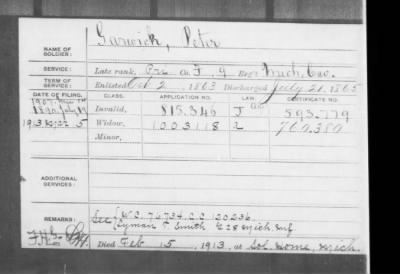 Garwick, Peter
NAME OF SOLDIER:
SERVICE: Late rank, Pvt Co. F, 9 Reg't Mich. Cav.
TERM OF SERVICE: Enlisted Oct 2, 1863 Discharged July 21, 1865
DATE OF FILING. CLASS. APPLICATION NO. LAW. CERTIFICATE NO.
1890 July Invalid, 815.346 J 593.779
1913 Mar 5 Widow, 1003118 2 760.380
Minor,
ADDITIONAL SERVICES:
REMARKS: See W.C. 76734. C.C. 120236.
Lyman T. Smith G 28 Mich Inf.
Died Feb 15, 1913, at Sol. Home, Mich.